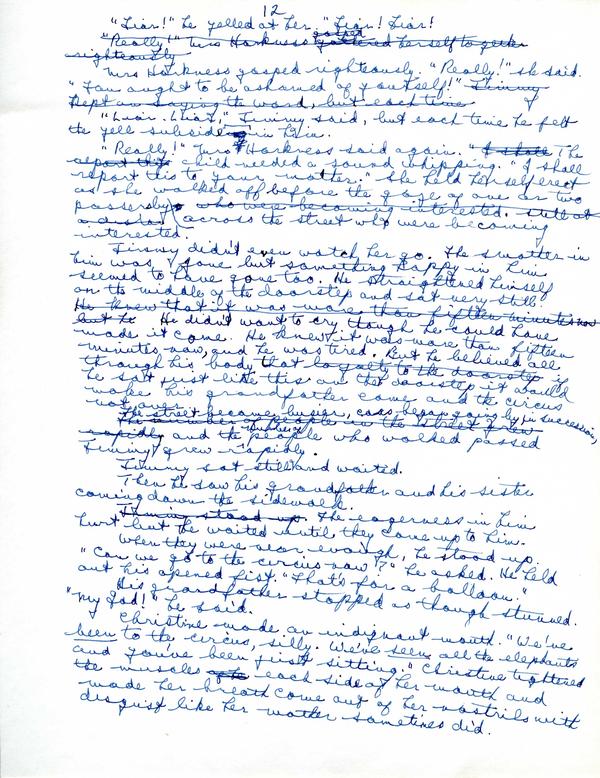 12
"Liar!" he yelled at her. "Liar! Liar!
"Really!" Mrs Harkness gasped gathered herself to
righteously
Mrs Harkness gasped righteously. "Really!" she said.
"You ought to be ashamed of yourself!" Jimmy
kept on saying the word, but each time
"Liar. Liar," Jimmy said, but each time he felt
the yell subside in him.
"Really!" Mrs Harkness said again. "I shall The
report this child needed a sound whipping. "I shall
report this to your mother." She held herself erect
as she walked off before the gaze of one or two
passersby who were becoming interested. still at
a distance across the street who were becoming
interested.
Jimmy didn't even watch her go. The smother in
him was gone but something happy in him
seemed to have gone too. He straightened himself
on the middle of the doorstep and sat very still.
He knew that it was more than fifteen minutes now
but he He didn't want to cry though he could have
made it come. He knew it was more than fifteen
minutes now, and he was tired. But he believed all
through his body that loyalty to the doorstep if
he sat just like this on the doorstep it would
make his grandfather come and the circus
not over.
The street became busier, cars began going by in succession,
The number of people in the street grew
rapidly and the people who walked passed
Jimmy grew rapidly.
Jimmy sat still and waited.
Then he saw his grandfather and his sister
coming down the sidewalk.
Jimmy stood up. The eagerness in him
hurt but he waited until they came up to him.
When they were near enough, he stood up.
"Can we go to the circus now?" he asked. He held
out his opened fist. "That's for a balloon."
His grandfather stopped as though stunned.
"My God!" he said.
Christine made an indignant mouth. "We've
been to the circus, silly. We've seen all the elephants
and you've been just sitting." Christine tightened
the muscles each side of her mouth and
made her breath come out of her nostrils with
disgust like her mother sometimes did.